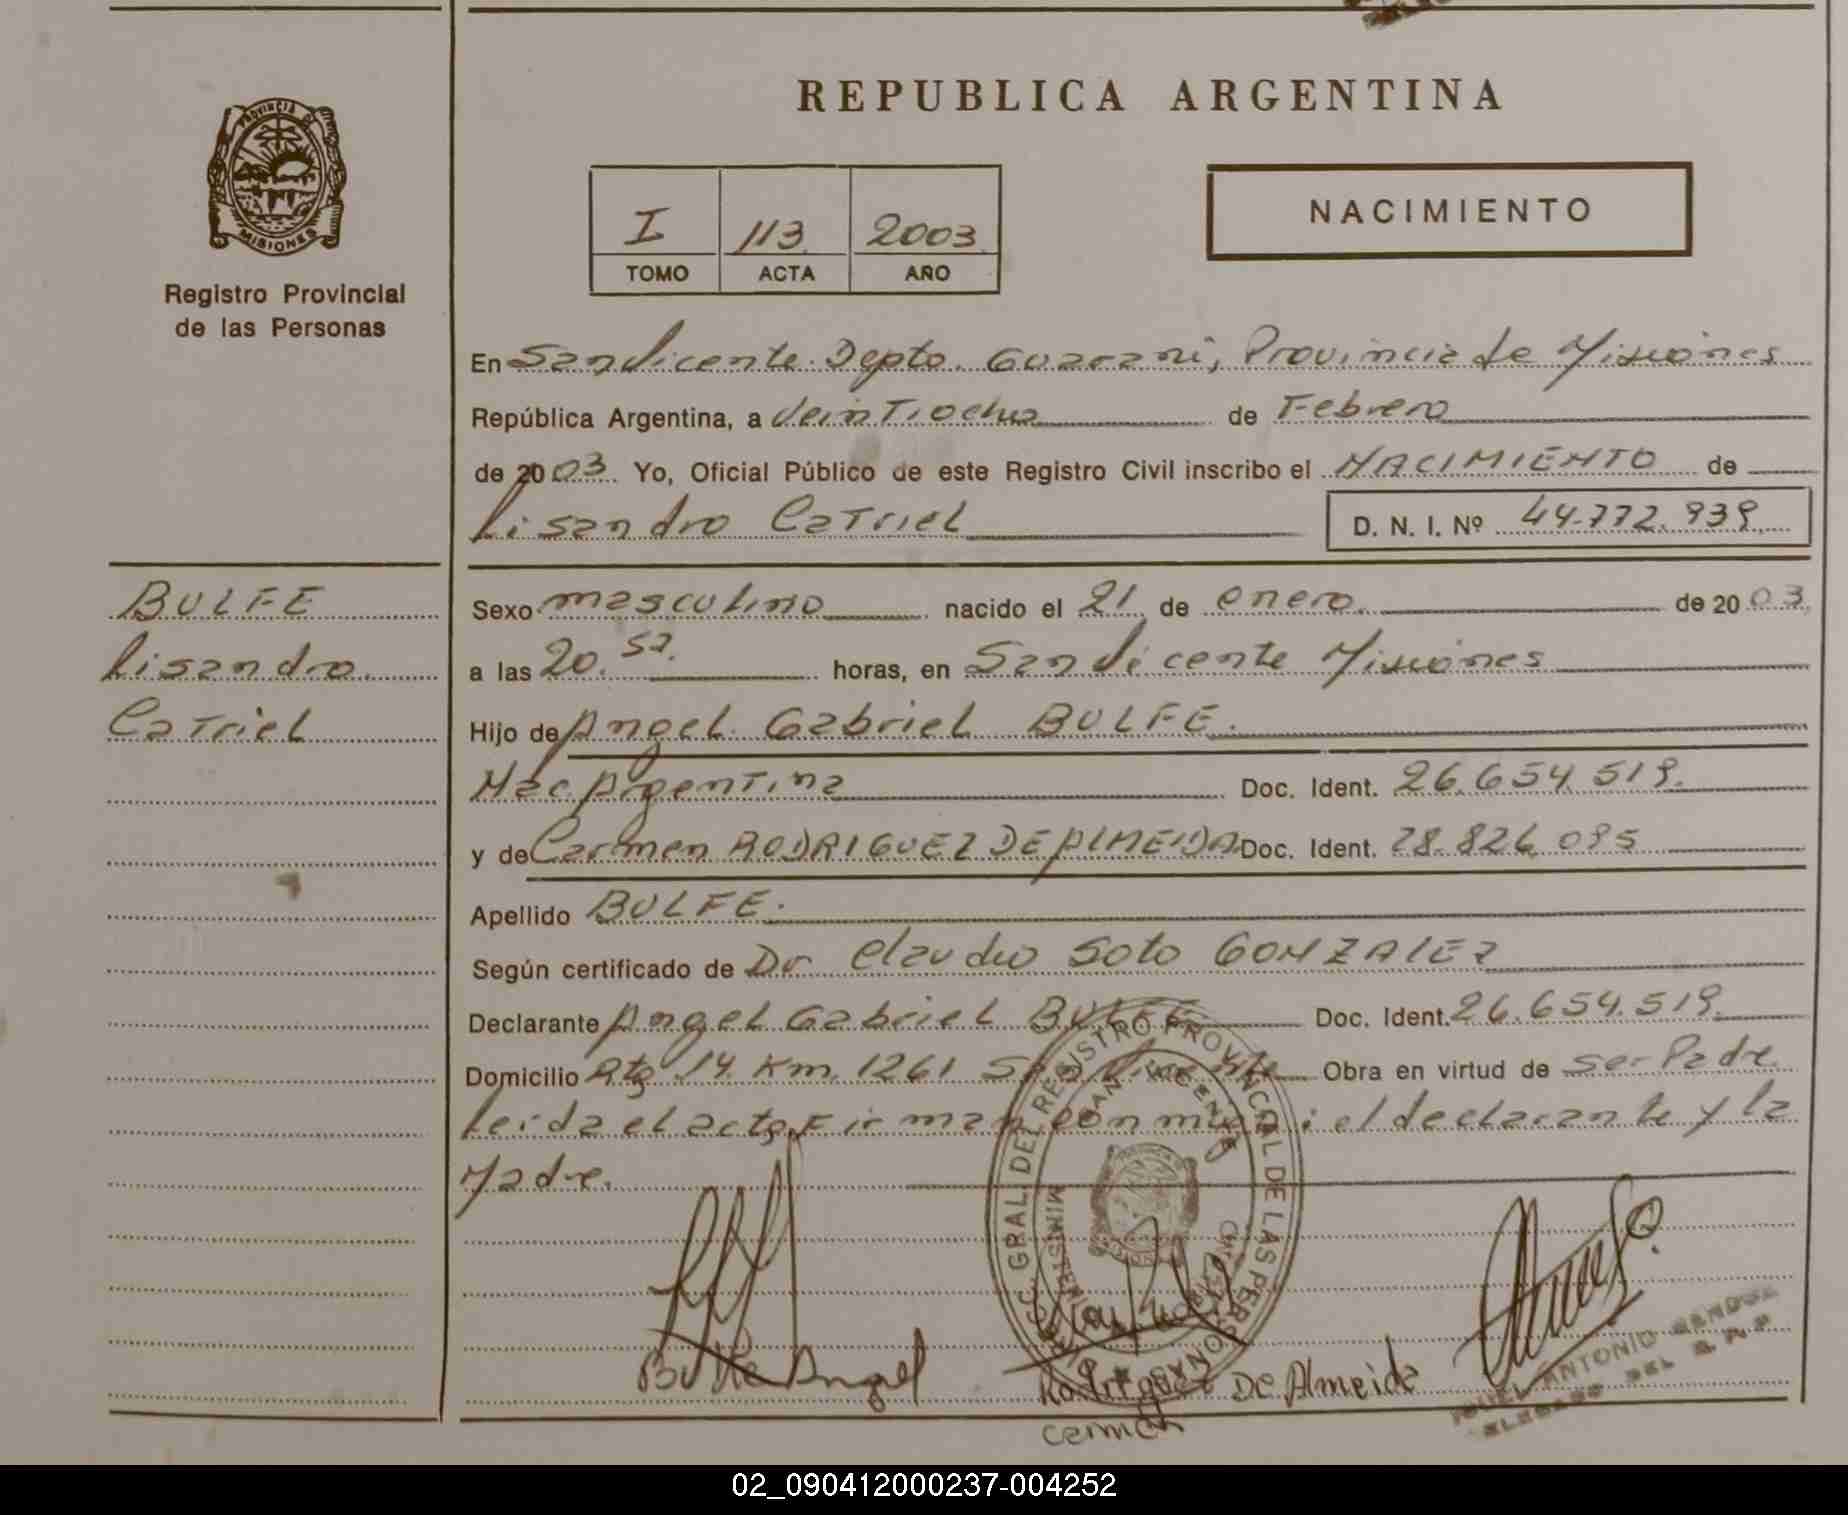 REPUBLICA ARGENTINA
PROVINCIA DE
MISIONES
Registro Provincial
de las Personas
I 113 2003
TOMO ACTA AÑO
NACIMIENTO
En San Vicente Depto. Guarani, Provincia de Misiones
República Argentina, a Veintiocho de Febrero
de 2003. Yo, Oficial Público de este Registro Civil inscribo el NACIMIENTO de
Lisandro Catriel D. N. I. Nº 44.772.939
BULFE
Lisandro
Catriel
Sexo masculino nacido el 21 de enero de 2003
a las 20. 52. horas, en San Vicente Misiones
Hijo de Angel Gabriel BULFE.
Nac Argentina Doc. Ident. 26.654.519.
y de Carmen RODRIGUEZ DE ALMEIDA Doc. Ident. 28.826.095
Apellido BULFE.
Según certificado de Dr Claudio Soto GONZALEZ
Declarante Angel Gabriel BULFE Doc. Ident. 26.654.519.
Domicilio Rta 14 Km. 1261 San Vicente Obra en virtud de ser Padre
leida el acta Firman con migo: el declarante y la
Madre.
GRAL. DEL REGISTRO PROVINCIAL DE LAS PERSONAS
SAN VICENTE
Bulfe Angel
Rodriguez De Almeida
Carmen
ANTONIO
DEL
02_090412000237-004252